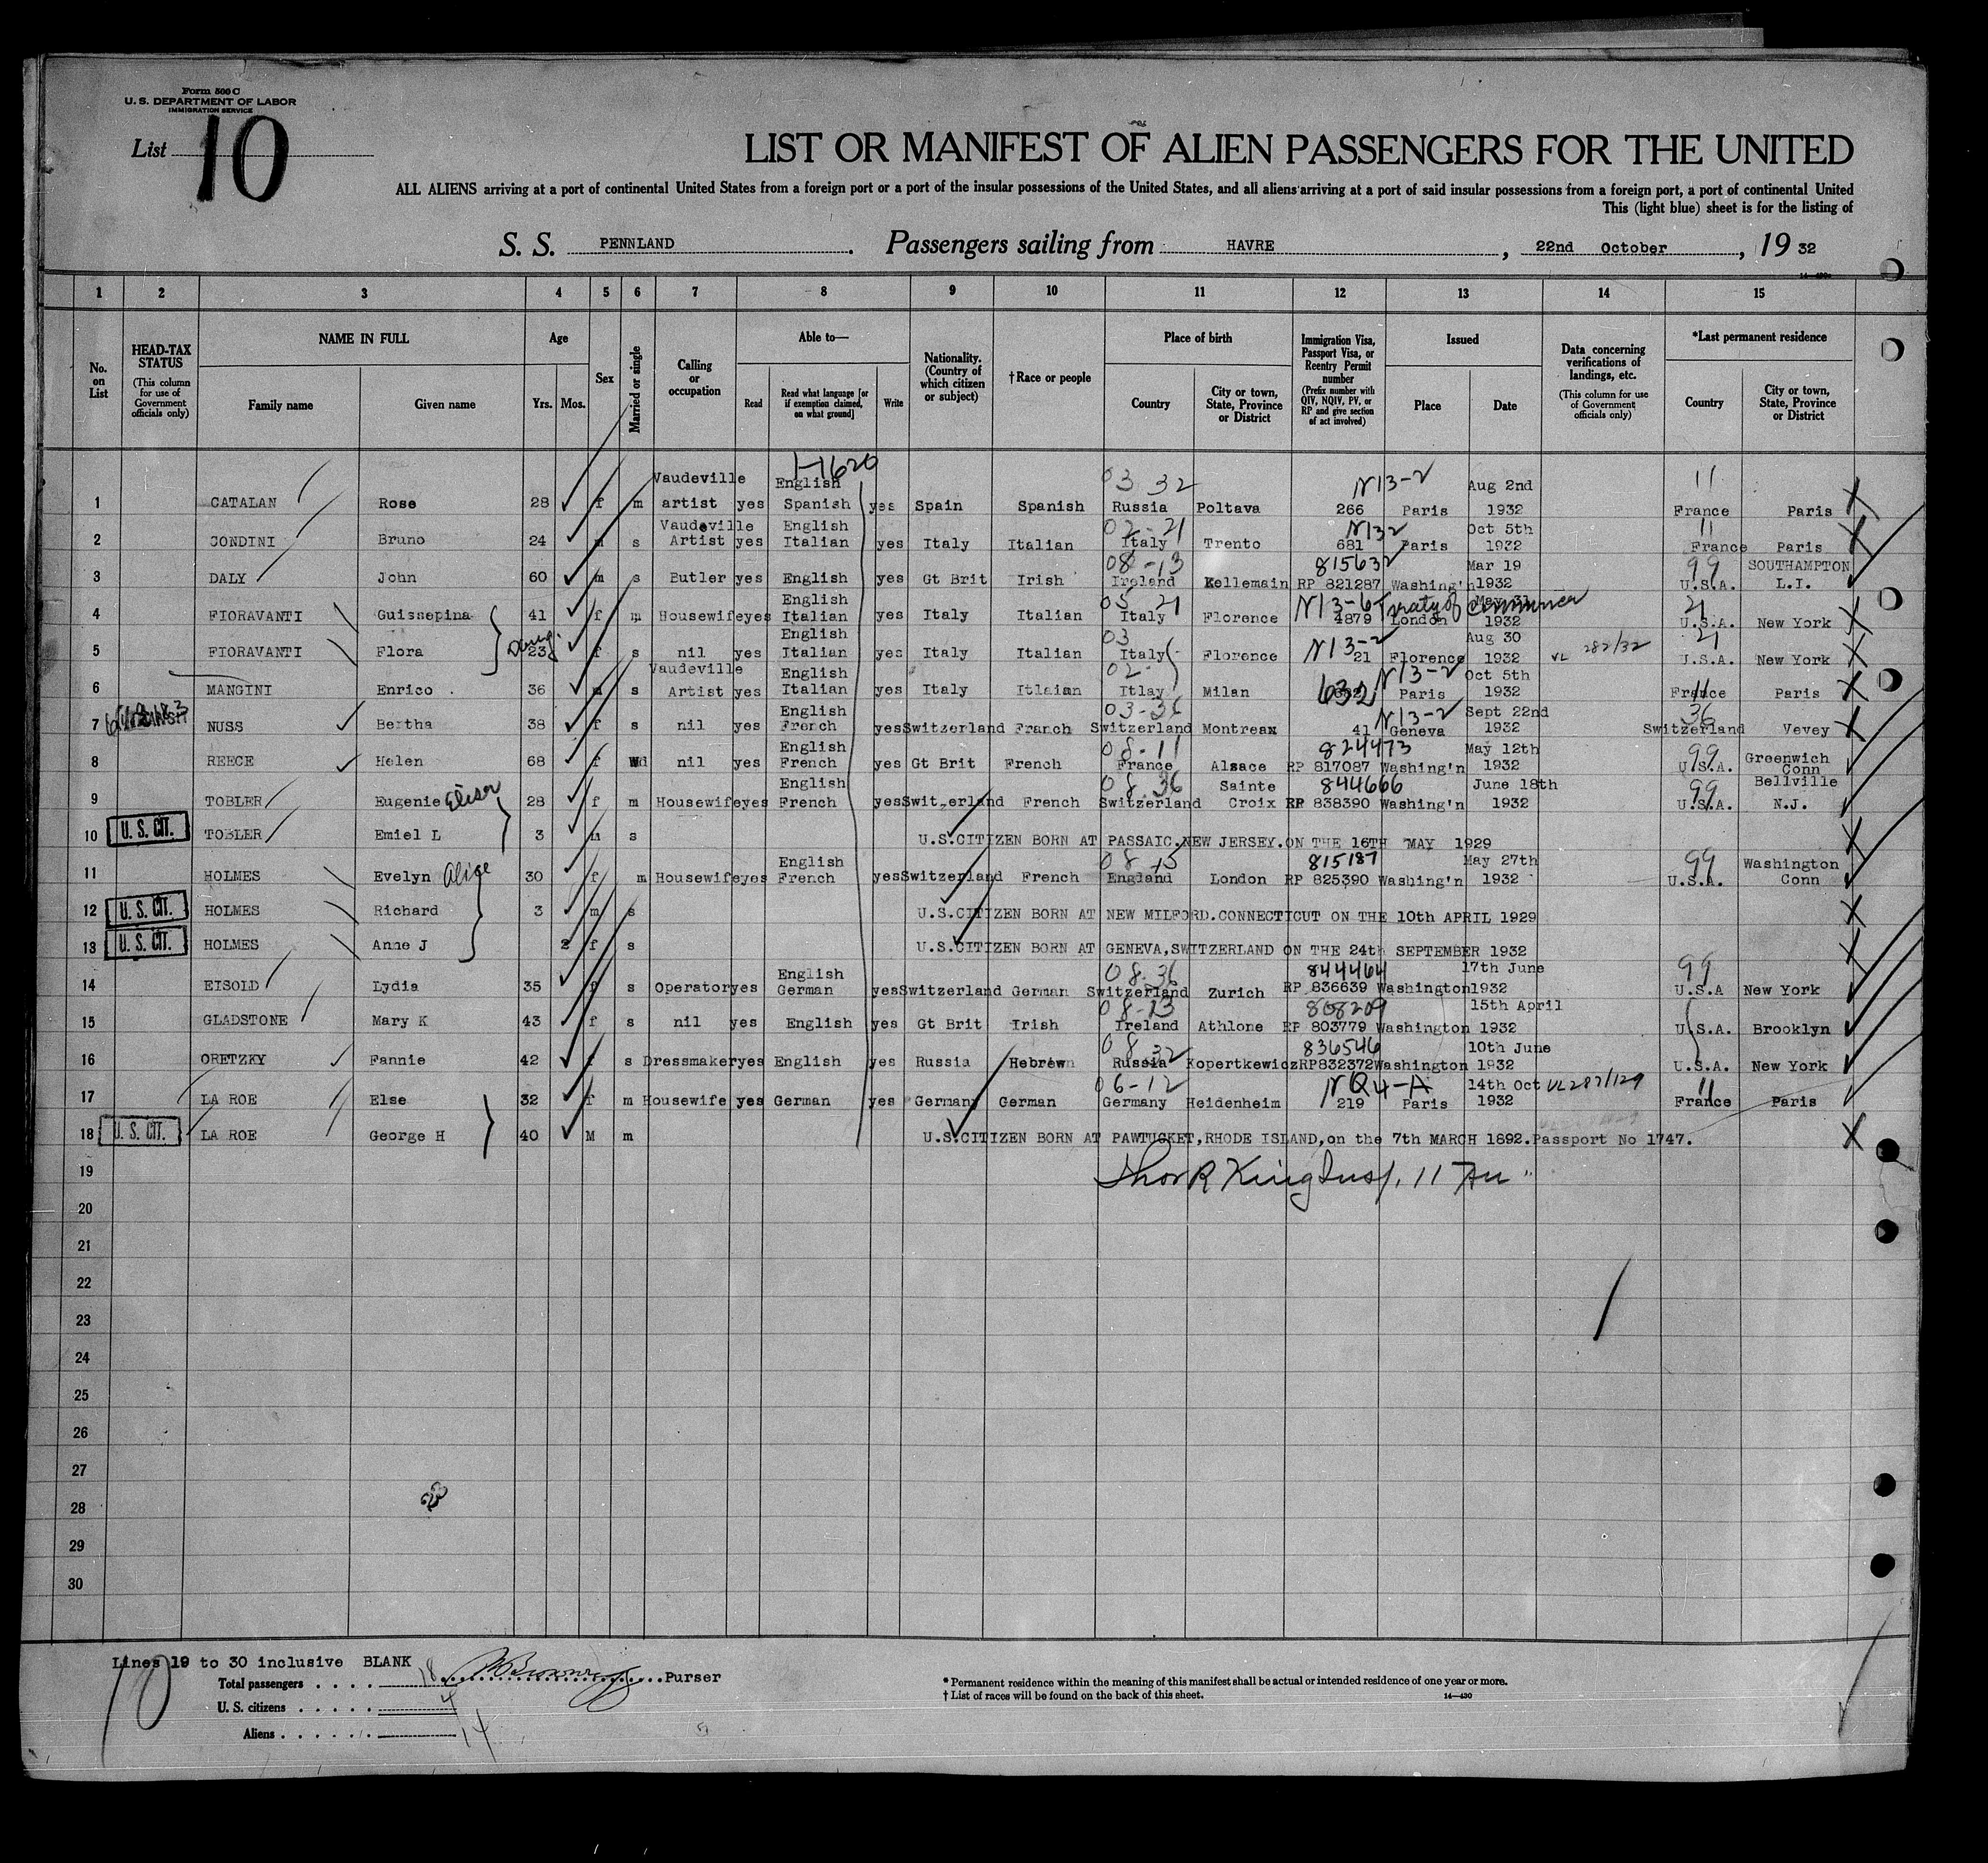 Form 500 C
U. S. DEPARTMENT OF LABOR
IMMIGRATION SERVICE
List 10
LIST OR MANIFEST OF ALIEN PASSENGERS FOR THE UNITED
ALL ALIENS arriving at a port of continental United States from a foreign port or a port of the insular possessions of the United States, and all aliens arriving at a port of said insular possessions from a foreign port, a port of continental United
This (light blue) sheet is for the listing of
S. S. PENNLAND. Passengers sailing from HAVRE, 22nd October, 19 32
1 2 3 4 5 6 7 8 9 10 11 12 13 14 15
No. on List
HEAD-TAX STATUS (This column for use of Government officials only)
NAME IN FULL
Family name Given name
Age
Yrs. Mos.
Sex
Married or single
Calling or occupation
Able to—
Read
Read what language [or if exemption claimed, on what ground]
Write
Nationality. (Country of which citizen or subject)
†Race or people
Place of birth
Country
City or town, State, Province or District
Immigration Visa, Passport Visa, or Reentry Permit number (Prefix number with QIV, NQIV, PV, or RP and give section of act involved)
Issued
Place Date
Data concerning verifications of landings, etc. (This column for use of Government officials only)
*Last permanent residence
Country
City or town, State, Province or District
1-1620
Vaudeville English 03 32 N13-2 Aug 2nd 11
1 CATALAN Rose 28 f m artist yes Spanish yes Spain Spanish Russia Poltava 266 Paris 1932 France Paris
Vaudeville English 02-21 N132 Oct 5th 11
2 CONDINI Bruno 24 m s Artist yes Italian yes Italy Italian Italy Trento 681 Paris 1932 France Paris
08-13 815632 Mar 19 99 SOUTHAMPTON
3 DALY John 60 m s Butler yes English yes Gt Brit Irish Ireland Kellemain RP 821287 Washing'n 1932 U.S.A. L.I.
English 05 21 N13-6 Treaty of Commerce May 31 21
4 FIORAVANTI Guissepina 41 f m Housewife yes Italian yes Italy Italian Italy Florence 4879 London 1932 U.S.A. New York
Daug. English 03 N13-2 Aug 30 21
5 FIORAVANTI Flora 23 f s nil yes Italian yes Italy Italian Italy Florence 21 Florence 1932 VL 282/32 U.S.A. New York
Vaudeville English 02- N13-2 Oct 5th 11
6 MANGINI Enrico 36 m s Artist yes Italian yes Italy Itlaian Itlay Milan 632 Paris 1932 France Paris
English 03-36 N13-2 Sept 22nd 36
7 NUSS Bertha 38 f s nil yes French yes Switzerland Franch Switzerland Montreax 41 Geneva 1932 Switzerland Vevey
English 08-11 824473 May 12th 99 Greenwich
8 REECE Helen 68 f Wd nil yes French yes Gt Brit French France Alsace RP 817087 Washing'n 1932 U.S.A. Conn
English 08.36 Sainte 844666 June 18th 99 Bellville
9 TOBLER Eugenie Elisa 28 f m Housewife yes French yes Switzerland French Switzerland Croix RP 838390 Washing'n 1932 U.S.A. N.J.
10 U. S. CIT. TOBLER Emiel L 3 m s U.S.CITIZEN BORN AT PASSAIC.NEW JERSEY.ON THE 16TH MAY 1929
English 08-15 815187 May 27th 99 Washington
11 HOLMES Evelyn Alice 30 f m Housewife yes French yes Switzerland French England London RP 825390 Washing'n 1932 U.S.A. Conn
12 U. S. CIT. HOLMES Richard 3 m s U.S.CITIZEN BORN AT NEW MILFORD.CONNECTICUT ON THE 10th APRIL 1929
13 U. S. CIT. HOLMES Anne J 2 f s U.S.CITIZEN BORN AT GENEVA,SWITZERLAND ON THE 24th SEPTEMBER 1932
English 08.36 844464 17th June 99
14 EISOLD Lydia 35 f s Operator yes German yes Switzerland German Switzerland Zurich RP 836639 Washington 1932 U.S.A New York
08-13 808209 15th April
15 GLADSTONE Mary K 43 f s nil yes English yes Gt Brit Irish Ireland Athlone RP 803779 Washington 1932 U.S.A. Brooklyn
08 32 836546 10th June
16 ORETZKY Fannie 42 f s Dressmaker yes English yes Russia Hebrew Russia Kopertkewicz RP832372 Washington 1932 U.S.A. New York
06-12 NQ4-A 14th Oct VL287/129 11
17 LA ROE Else 32 f m Housewife yes German yes Germany German Germany Heidenheim 219 Paris 1932 France Paris
18 U. S. CIT. LA ROE George H 40 M m U.S.CITIZEN BORN AT PAWTUCKET,RHODE ISLAND,on the 7th MARCH 1892.Passport No 1747.
19 Thos R King Insp.
20
21
22
23
24
25
26
27
28
29
30
Lines 19 to 30 inclusive BLANK
10
Total passengers . . . . 18 Purser
U. S. citizens . . . . . 4
Aliens . . . . . . 14
* Permanent residence within the meaning of this manifest shall be actual or intended residence of one year or more.
† List of races will be found on the back of this sheet. 14—430